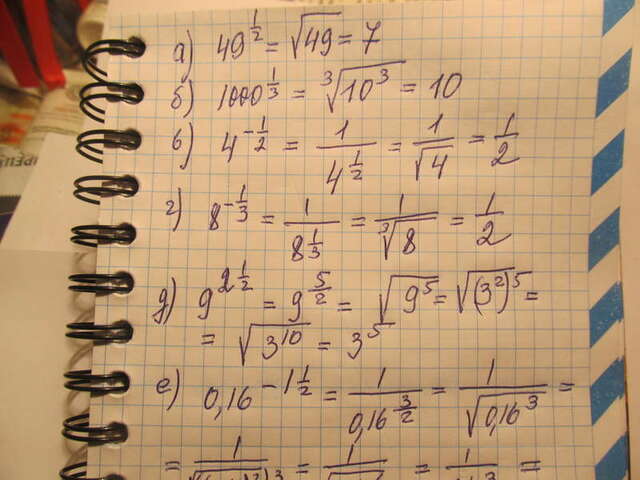 а) 49^{1/2} = √49 = 7
б) 1000^{1/3} = ∛(10³) = 10
в) 4^{-1/2} = 1/4^{1/2} = 1/√4 = 1/2
г) 8^{-1/3} = 1/8^{1/3} = 1/∛8 = 1/2
д) 9^{2 1/2} = 9^{5/2} = √(9⁵) = √((3²)⁵) =
= √(3¹⁰) = 3⁵
е) 0,16^{-1 1/2} = 1/0,16^{3/2} = 1/√(0,16³) =